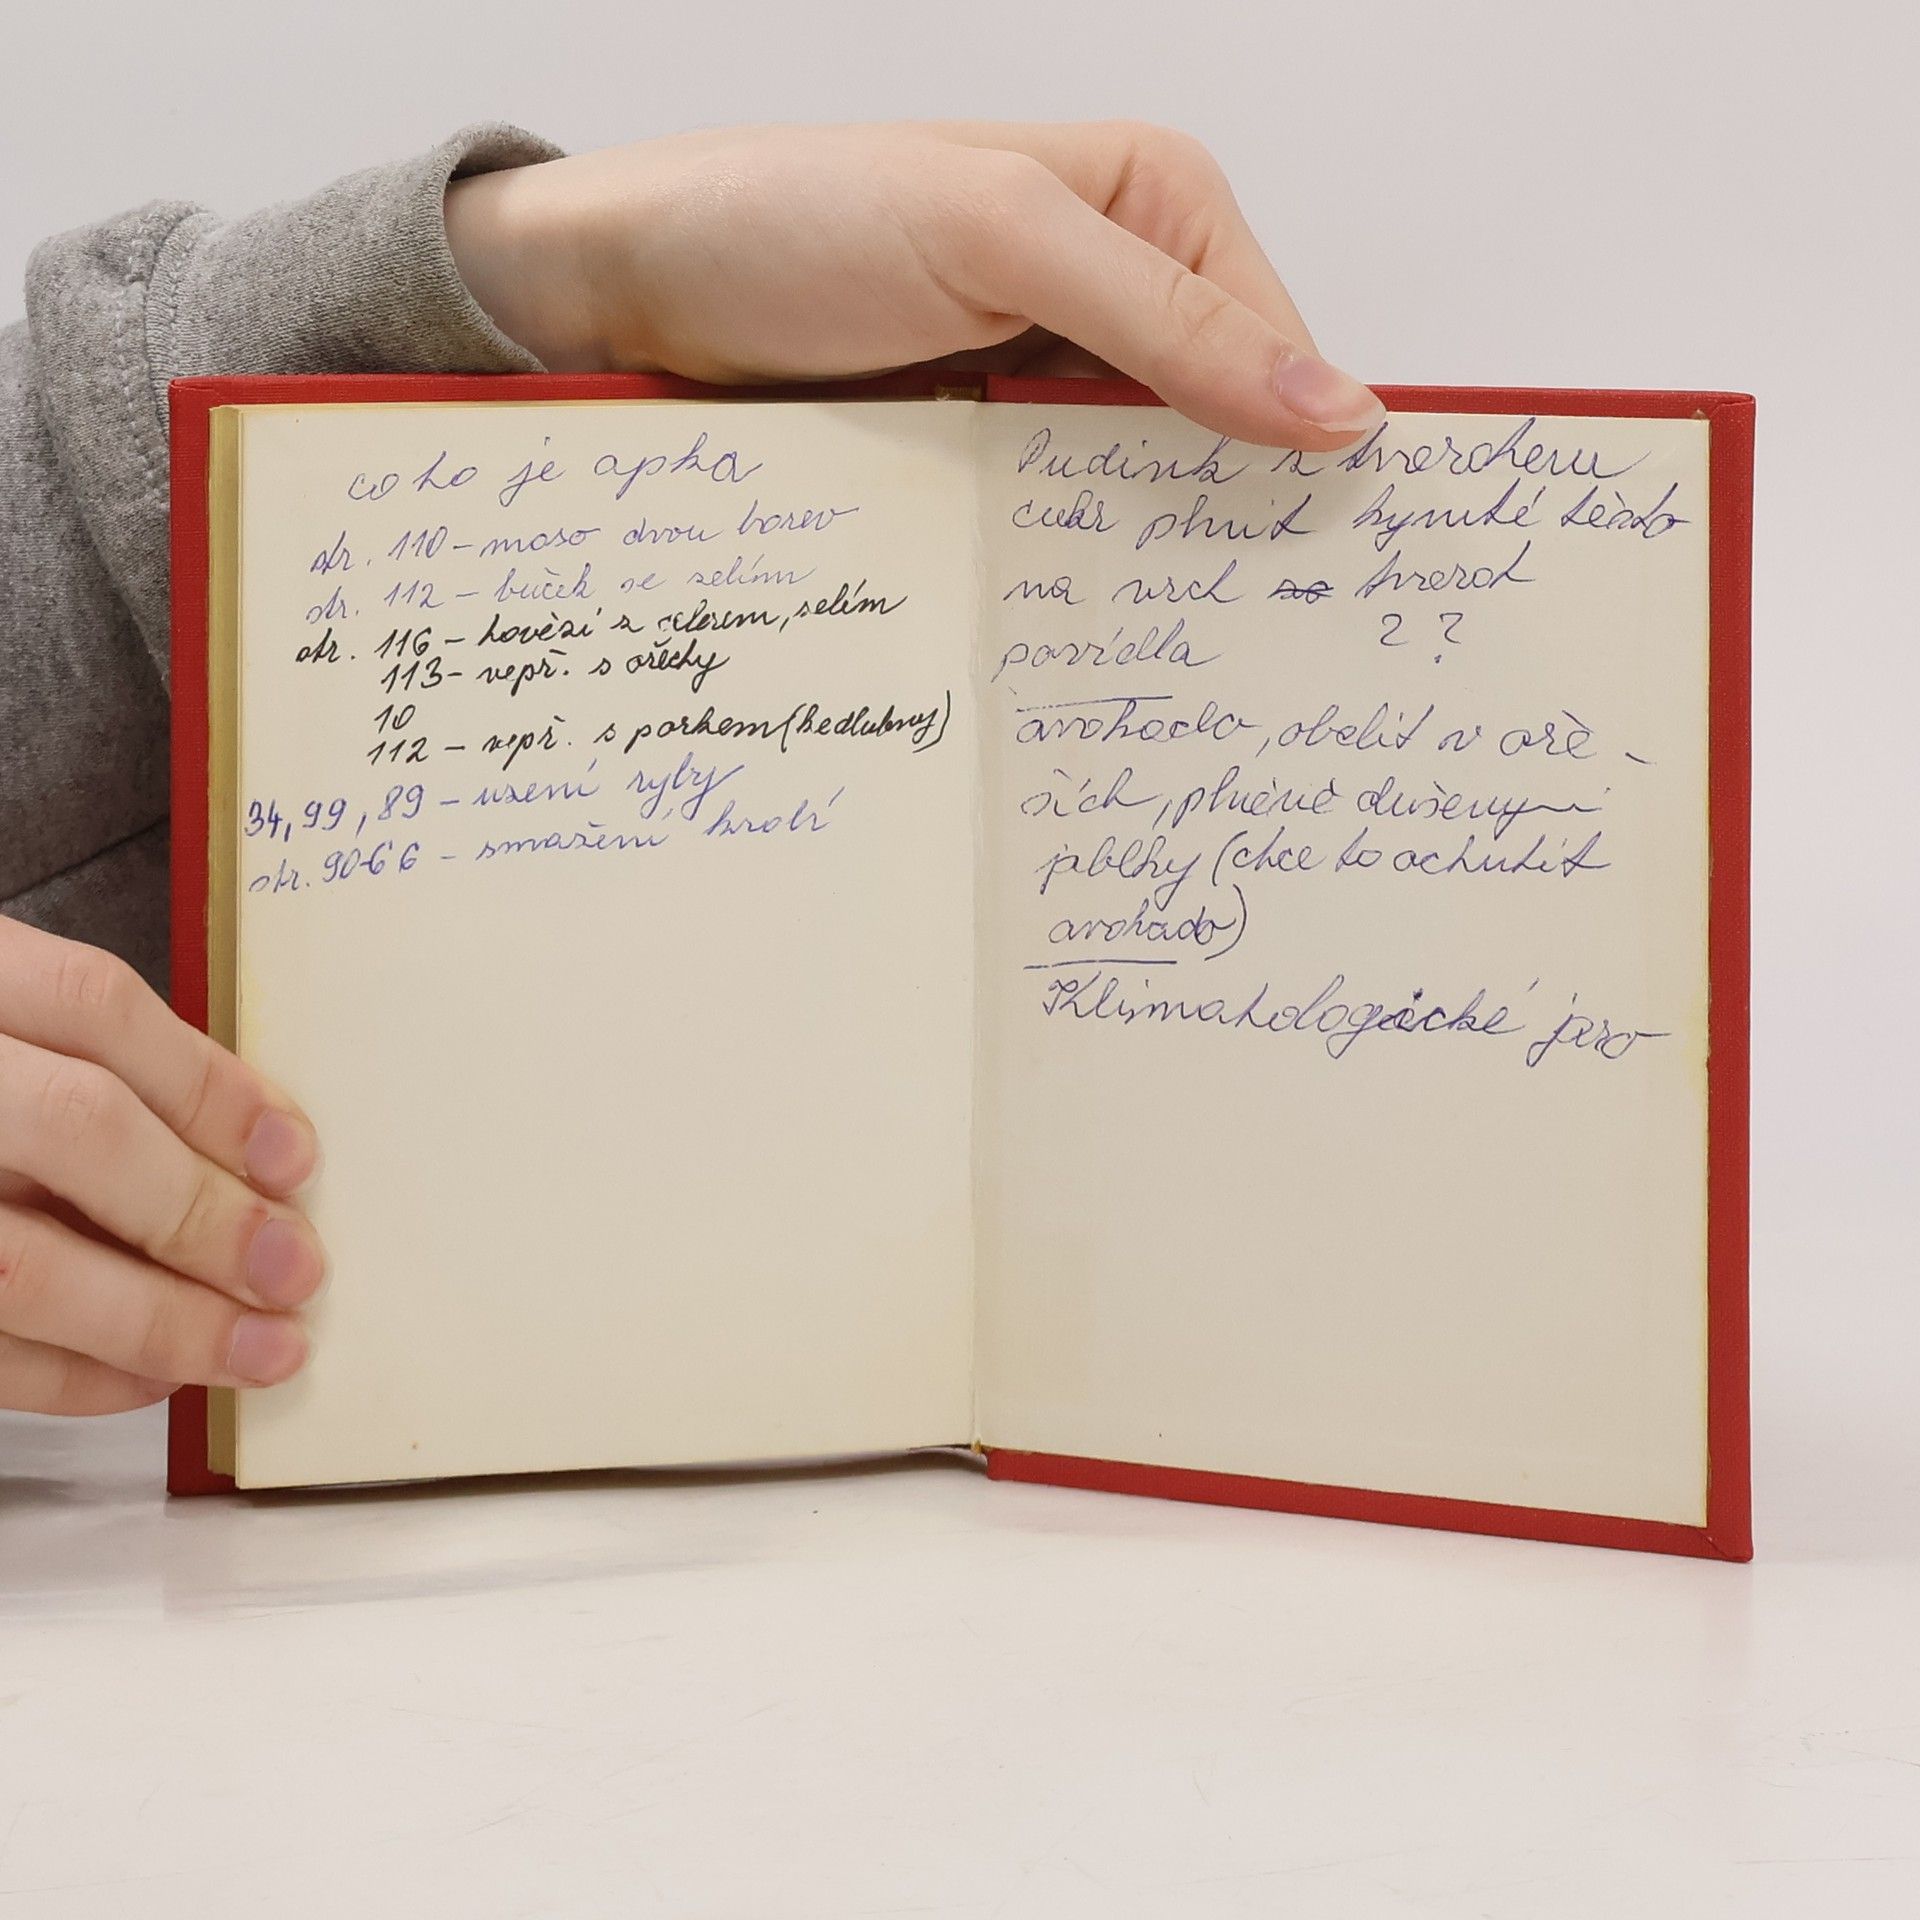 coto je apka
str. 110 - maso dvou barev
str. 112 - bůček se zelím
str. 116 - hovězí z celerem, zelím
113 - vepř. s ořechy
10
112 - vepř. s porkem (kedlubny)
34, 99, 89 - uzení ryby
str. 90-66 - smažení králí
Pudink z tvarohem
cukr plnit kynuté těsto
na vrch tvaroh
povidla ? ?
avokado, obalit v oře -
ších, plněné dušenymi
jablky (chce to ochutit
avokado)
Klimatologické jaro